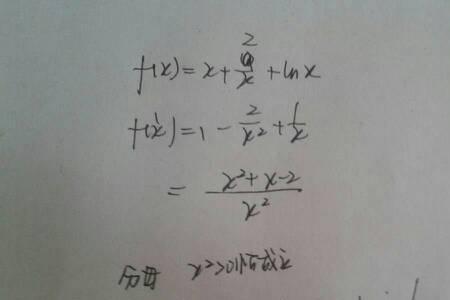 f(x)=x+2/x+lnx
f'(x)=1-2/x²+1/x
=(x²+x-2)/x²
分母 x²>0恒成立